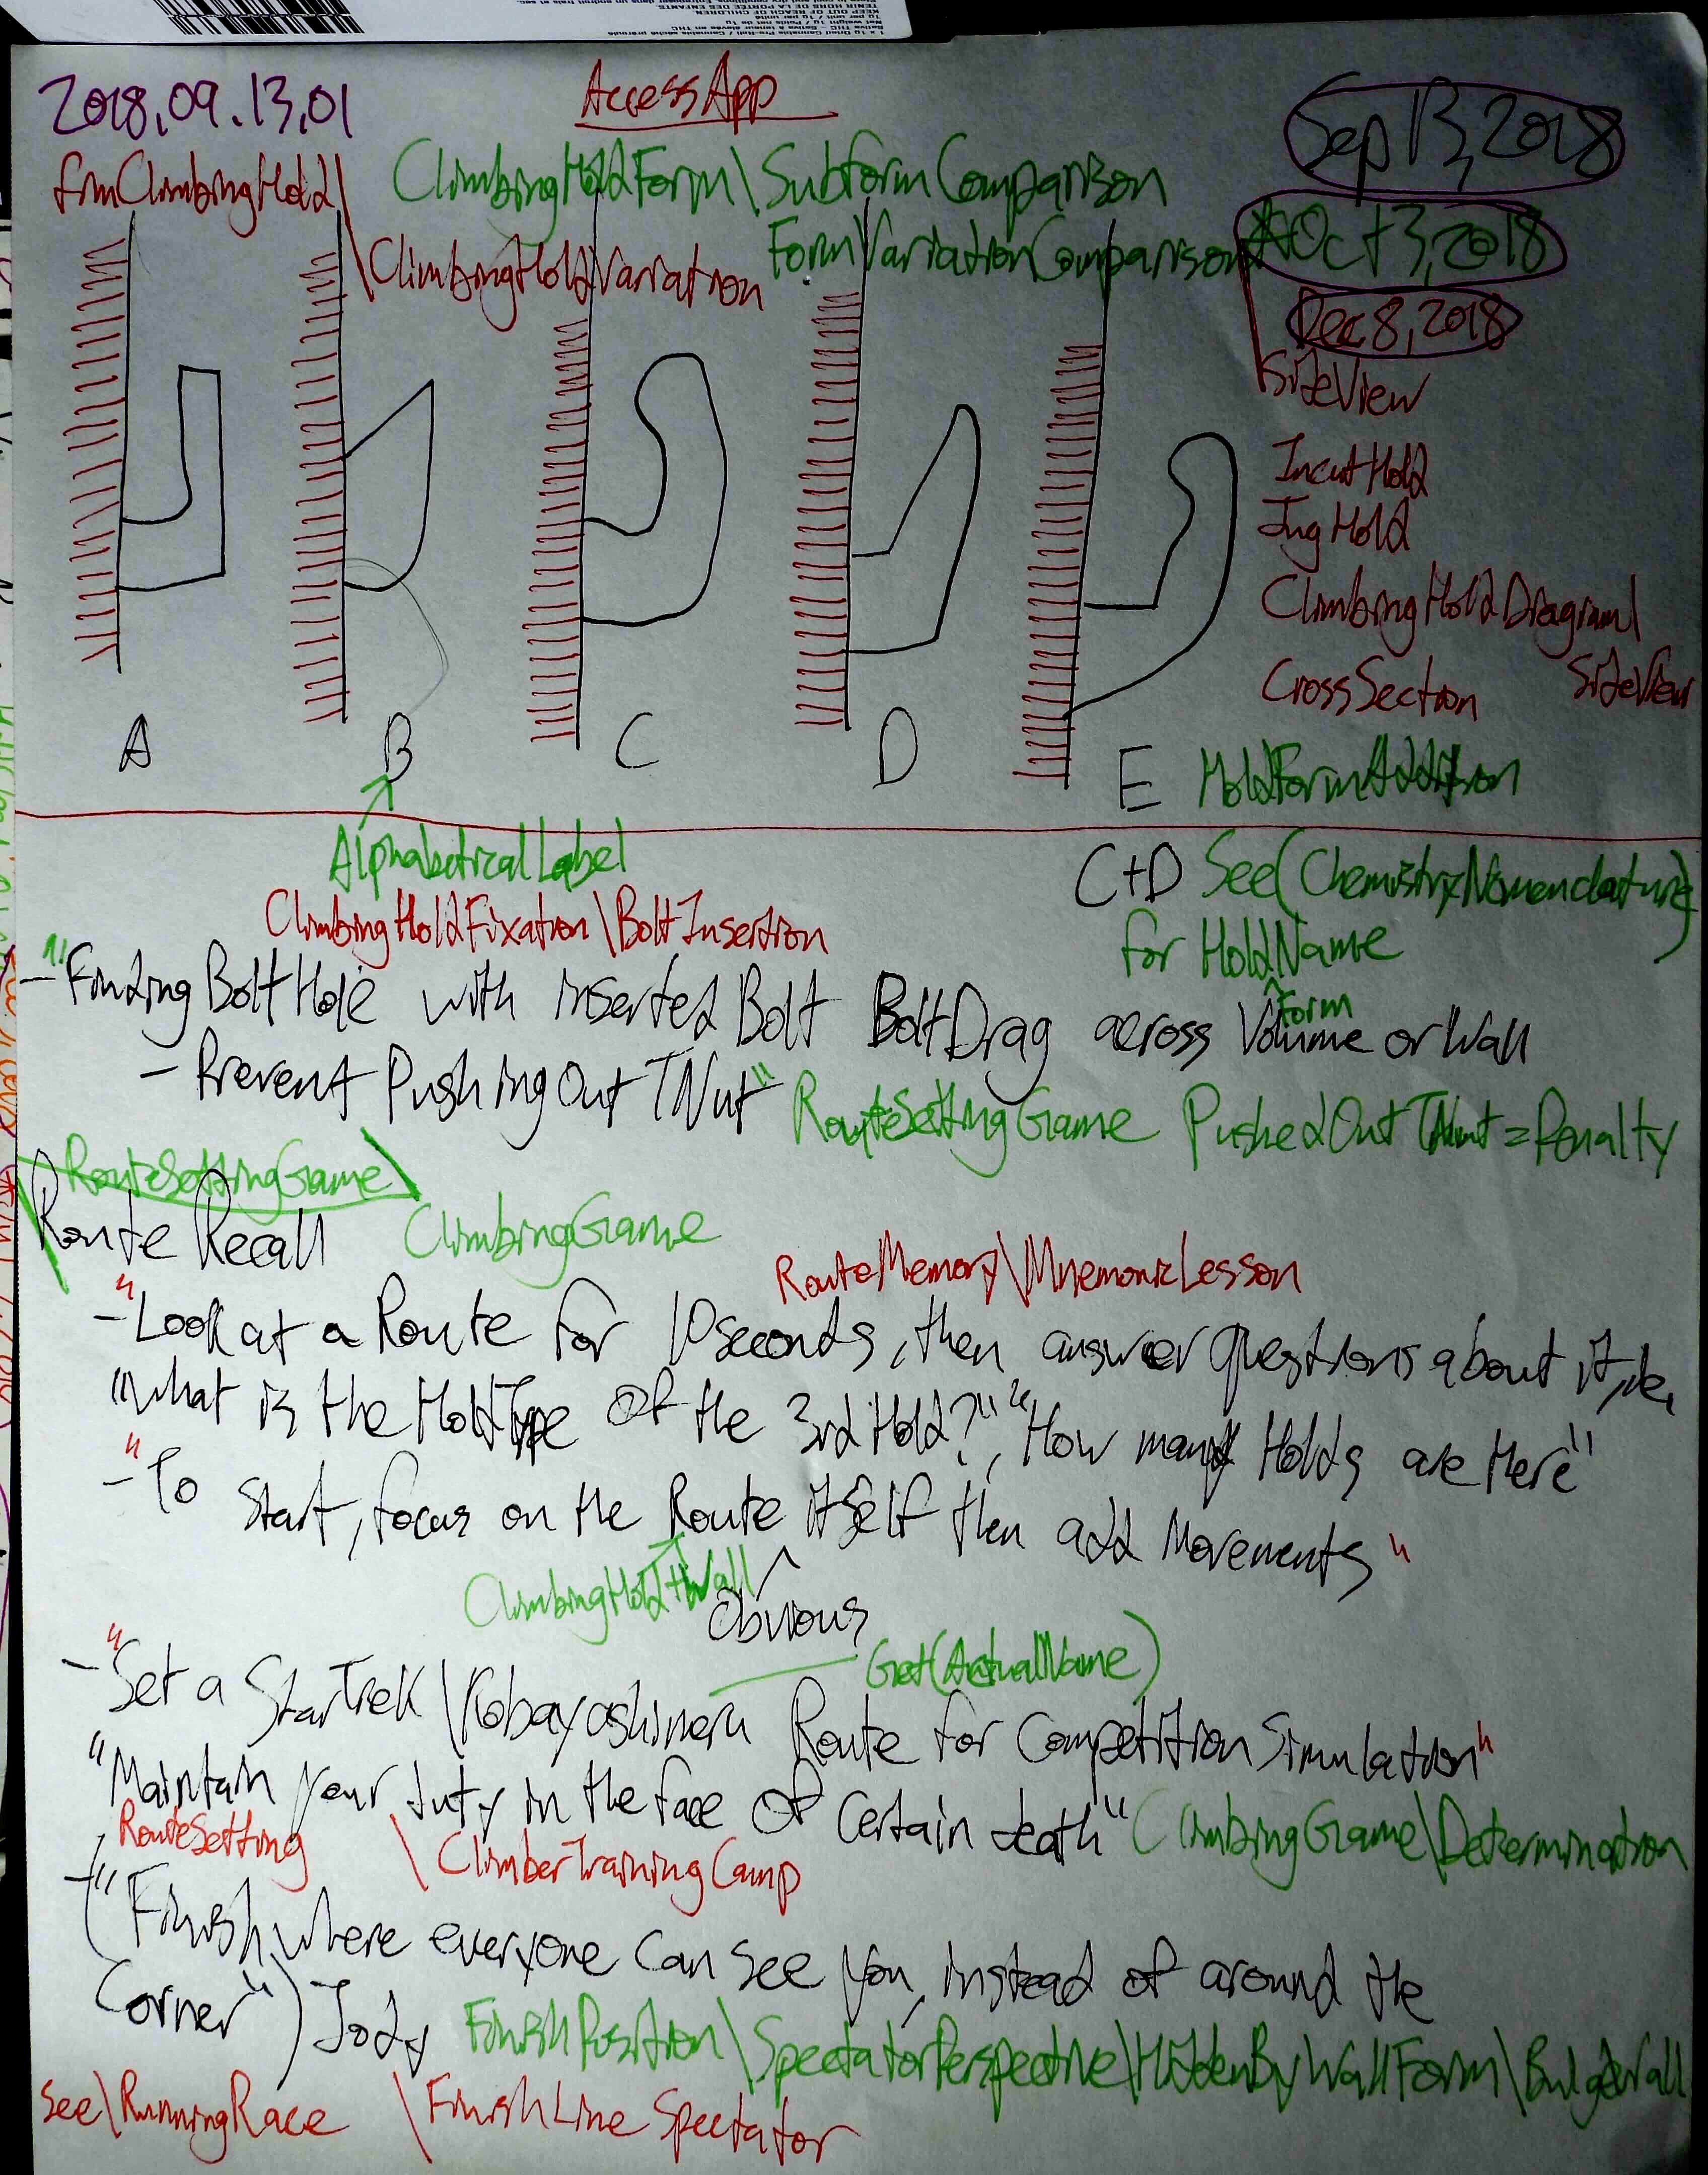 KEEP OUT OF REACH OF CHILDREN
2018.09.13.01
AccessApp
Sep 13, 2018
frmClimbingHold\
ClimbingHoldForm\SubformComparison
\ClimbingHoldVariation
FormVariationComparison
Oct 3, 2018
Dec 8, 2018
SideView
IncutHold
JugHold
ClimbingHoldDiagram\
SideView
CrossSection
A
B
C
D
E
HoldFormAddition
AlphabeticalLabel
C+D See(ChemistryNomenclature)
for HoldName
Form
ClimbingHoldFixation\BoltInsertion
-"Finding BoltHole with inserted Bolt BoltDrag across Volume or Wall
- Prevent PushingOut TNut" RouteSettingGame PushedOutTNut=Penalty
RouteSettingGame\
Route Recall ClimbingGame
RouteMemory\MnemonicLesson
-"Look at a Route for 10seconds, then answer questions about it, ie,
"What is the HoldType of the 3rd Hold?", "How many Holds are there"
-"To start, focus on the Route itself then add Movements"
ClimbingHold+Wall
Obvious
Get(ActualName)
-"Set a StarTrek\Kobayashimaru Route for CompetitionSimulation"
"Maintain your duty in the face of Certain death" ClimbingGame\Determination
RouteSetting \ClimberTrainingCamp
-("Finish where everyone can see you, instead of around the
Corner") Jody FinishPosition\SpectatorPerspective\HiddenByWallForm\BulgeWall
See\RunningRace \FinishLineSpectator